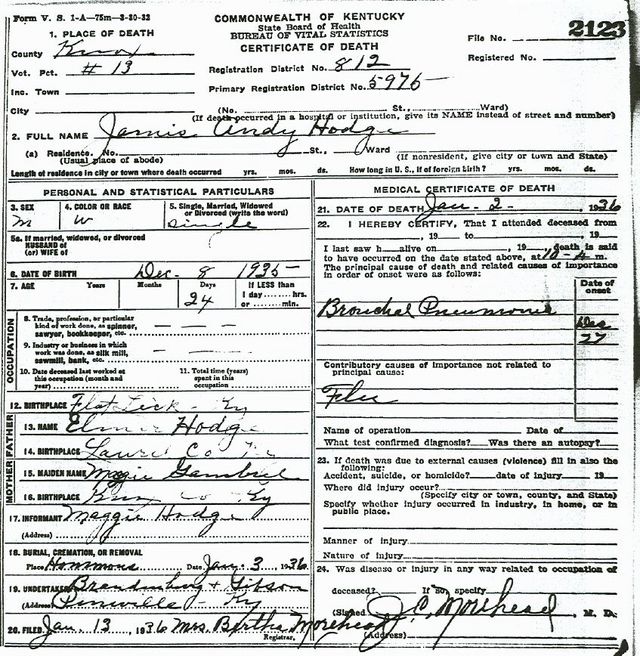 Form V. S. 1-A—75m—3-30-32
COMMONWEALTH OF KENTUCKY
State Board of Health
BUREAU OF VITAL STATISTICS
CERTIFICATE OF DEATH
File No. 2123
Registered No.
1. PLACE OF DEATH
County Knox
Vot. Pct. # 13
Inc. Town
City
Registration District No. 812
Primary Registration District No. 5975
(No. St., Ward)
(If death occurred in a hospital or institution, give its NAME instead of street and number)
2. FULL NAME Jamis Andy Hodge
(a) Residence. No. St., Ward
(Usual place of abode) (If nonresident, give city or town and State)
Length of residence in city or town where death occurred yrs. mos. ds. How long in U. S., if of foreign birth? yrs. mos. ds.
PERSONAL AND STATISTICAL PARTICULARS
3. SEX
M
4. COLOR OR RACE
W
5. Single, Married, Widowed or Divorced (write the word)
Single
5a. If married, widowed, or divorced
HUSBAND of
(or) WIFE of
6. DATE OF BIRTH Dec. 8 1935
7. AGE Years Months Days If LESS than
24 1 day hrs.
or min.
OCCUPATION
8. Trade, profession, or particular
kind of work done, as spinner,
sawyer, bookkeeper, etc.
9. Industry or business in which
work was done, as silk mill,
sawmill, bank, etc.
10. Date deceased last worked at
this occupation (month and
year)
11. Total time (years)
spent in this
occupation
12. BIRTHPLACE Flat Lick - Ky
FATHER
13. NAME Elmer Hodge
14. BIRTHPLACE Laurel Co
MOTHER
15. MAIDEN NAME Magie Gambrel
16. BIRTHPLACE Co Ky
17. INFORMANT Maggie Hodge
(Address)
18. BURIAL, CREMATION, OR REMOVAL
Place Hammons Date Jan. 3 1936
19. UNDERTAKER + Gibson
(Address) Pineville - Ky
20. FILED Jan. 13, 1936 Mrs. Bertha Morehead
Registrar.
MEDICAL CERTIFICATE OF DEATH
21. DATE OF DEATH Jan - 2 - 1936
22. I HEREBY CERTIFY, That I attended deceased from
, 19 to , 19
I last saw h alive on , 19 , death is said
to have occurred on the date stated above, at 10-A m.
The principal cause of death and related causes of importance
in order of onset were as follows:
Date of
onset
Bronchal Pneumonia
Dec
27
Contributory causes of importance not related to
principal cause:
Flu
Name of operation Date of
What test confirmed diagnosis? Was there an autopsy?
23. If death was due to external causes (violence) fill in also the
following:
Accident, suicide, or homicide? date of injury 19
Where did injury occur?
(Specify city or town, county, and State)
Specify whether injury occurred in industry, in home, or in
public place.
Manner of injury
Nature of injury
24. Was disease or injury in any way related to occupation of
deceased? If so, specify
(Signed) J. C. Morehead, M. D.
(Address)